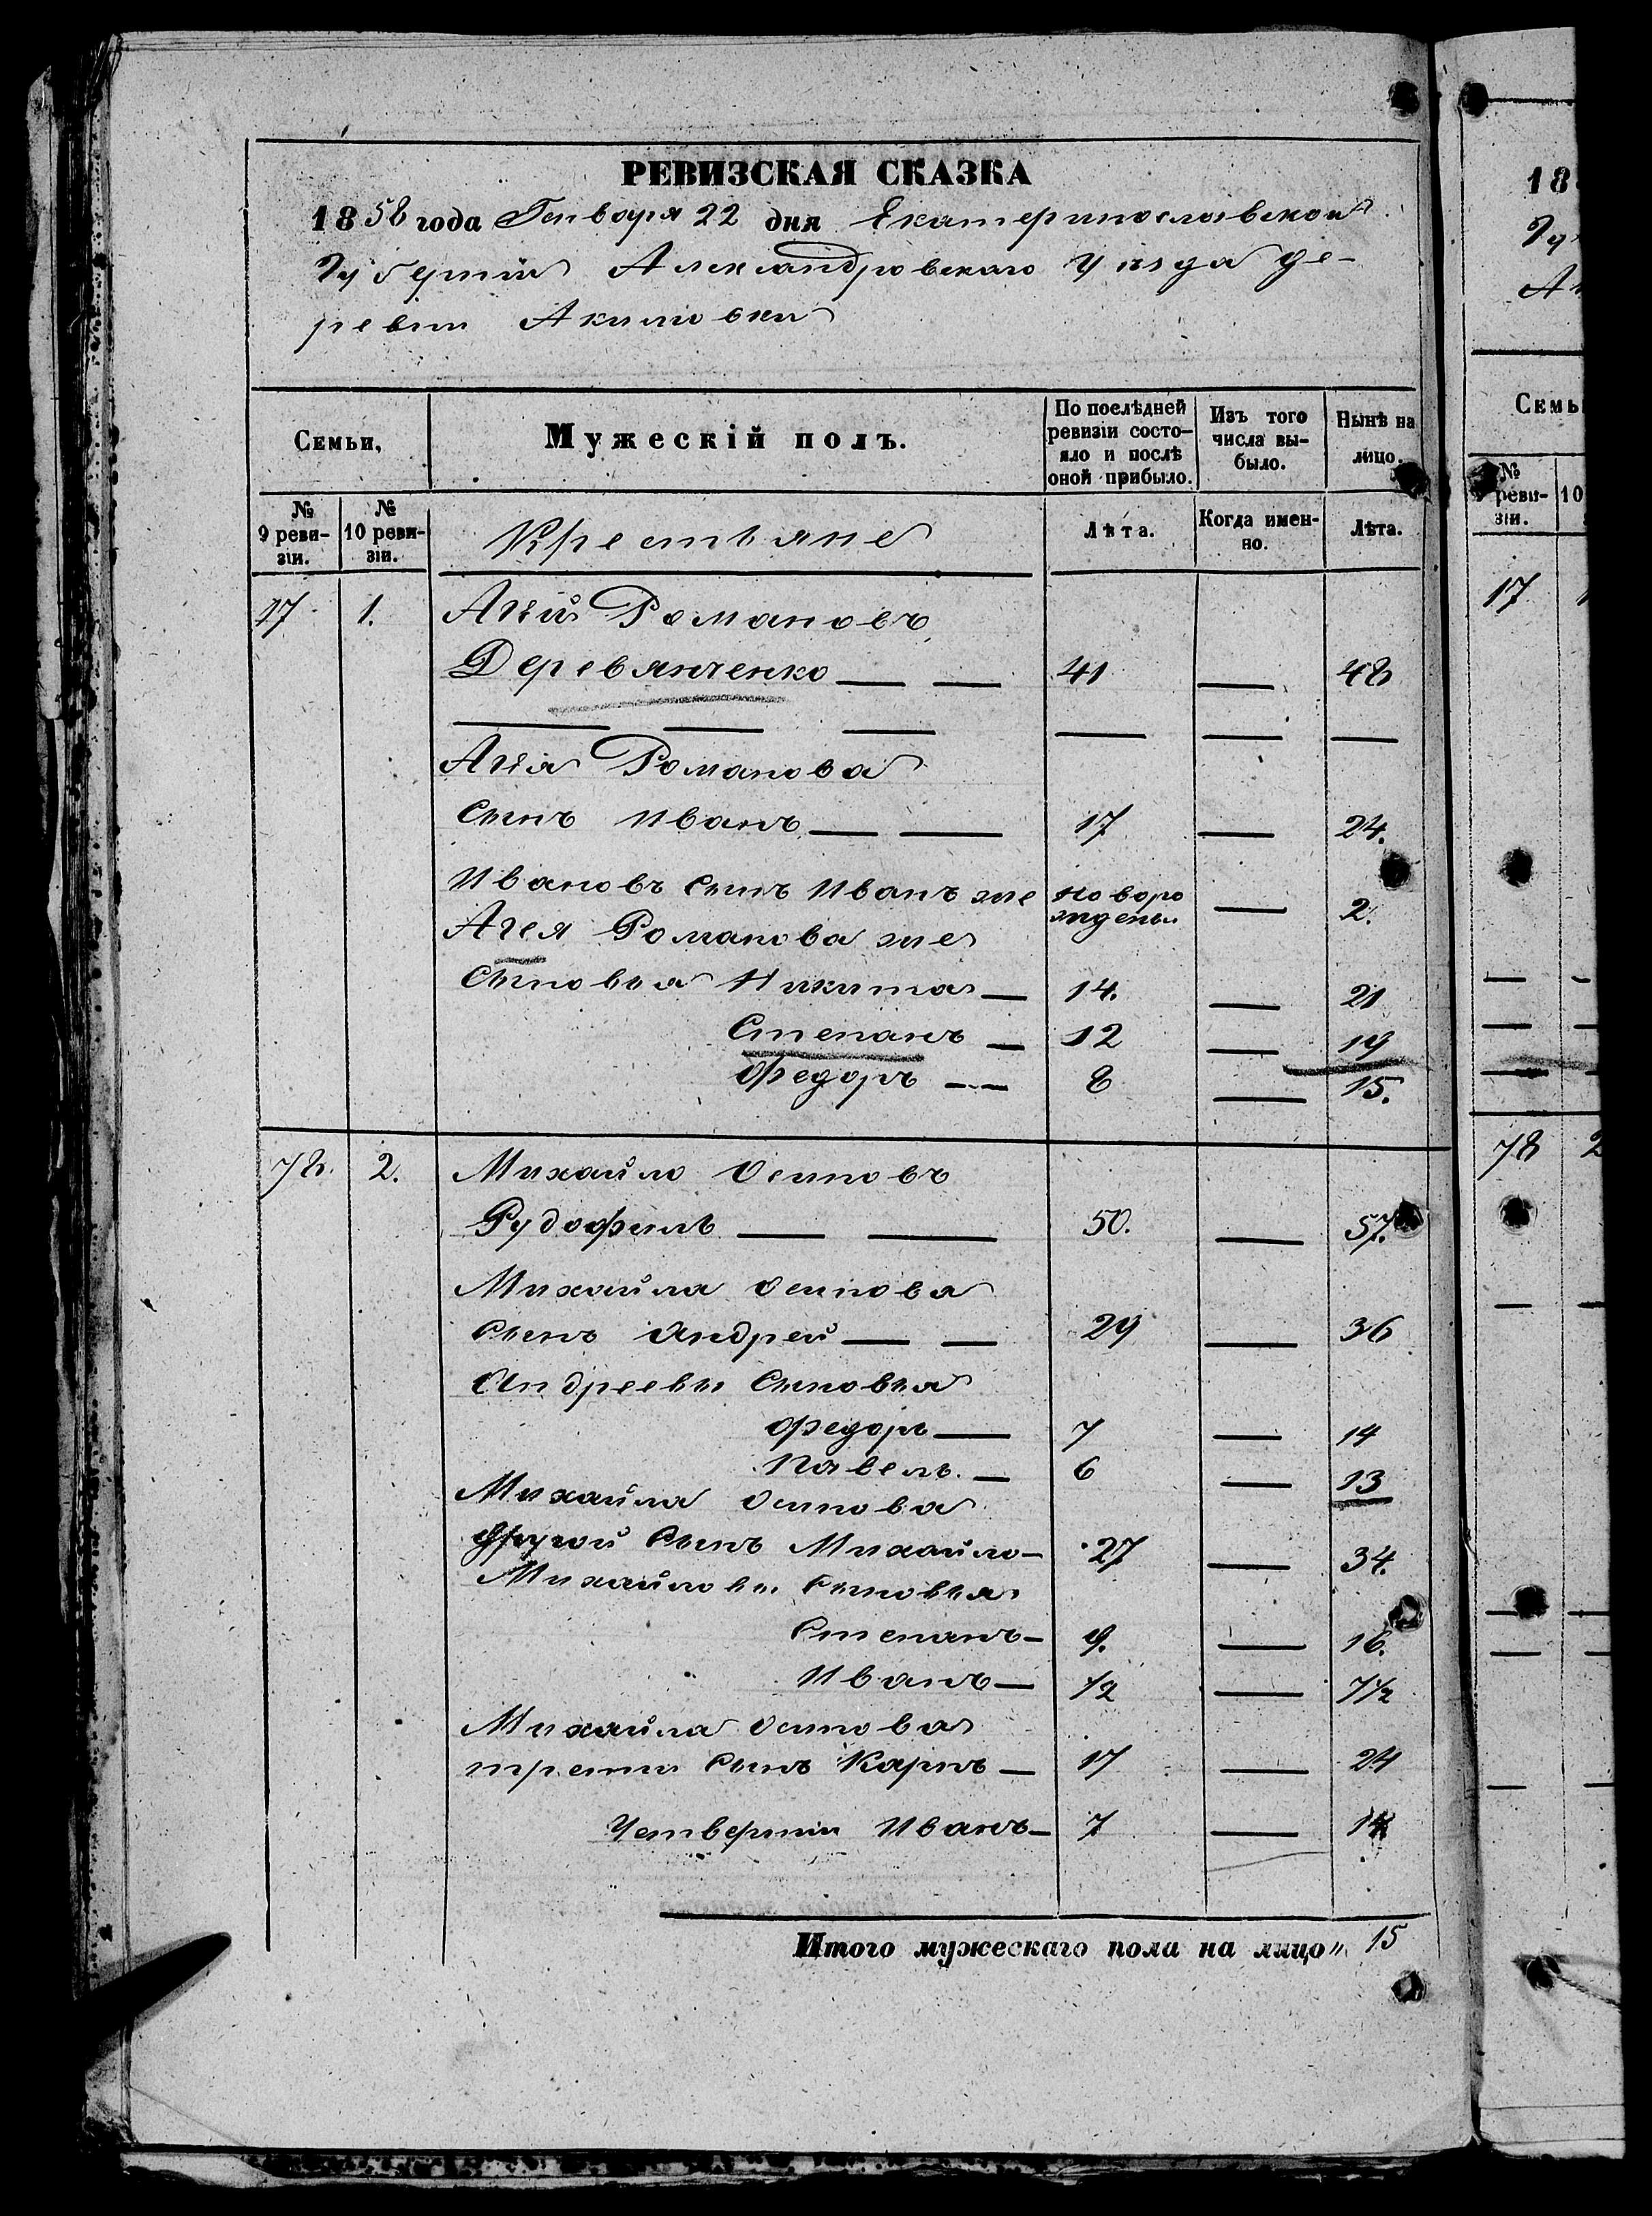 РЕВИЗСКАЯ СКАЗКА
1858 года Генваря 22 дня Екатеринославской
Губернии Александровскаго уезда де-
ревни Акимовки
Семьи,
Мужескій полъ.
По послѣдней ревизіи состо-
яло и послѣ оной прибыло.
Изъ того числа вы-
было.
Нынѣ на лицо.
№ 9 реви-
зіи.
№ 10 реви-
зіи.
Крестьяне
Лѣта.
Когда имен-
но.
Лѣта.
17 1. Агѣй Романовъ
Деревянченко — — 41 — 48
— — — — — —
Агѣя Романова
Сынъ Иванъ — — 17 — 24.
Ивановъ Сынъ Иванъ же новоро
ждены — 2.
Агея Романова же
Сыновья Никита — 14. — 21
Степанъ — 12 — 19
Федоръ — 8 — 15.
78. 2. Михайло Осиповъ
— — 50. — 57.
Михайла Осипова
Сынъ Андрей — — 29 — 36
Андреевы Сыновья
Федоръ — 7 — 14
Павелъ — 6 — 13
Михайла Осипова
другой Сынъ Михайло — 27 — 34.
Михайловы Сыновья
Степанъ — 9. — 16.
Иванъ — 1/2 — 7 1/2
Михайла Осипова
третий Сынъ Карпъ — 17 — 24
Четвертый Иванъ — 7 — 14
Итого мужескаго пола на лицо „ 15
18
Гу
А
Семь
№ реви-
зіи.
10
17
78 2